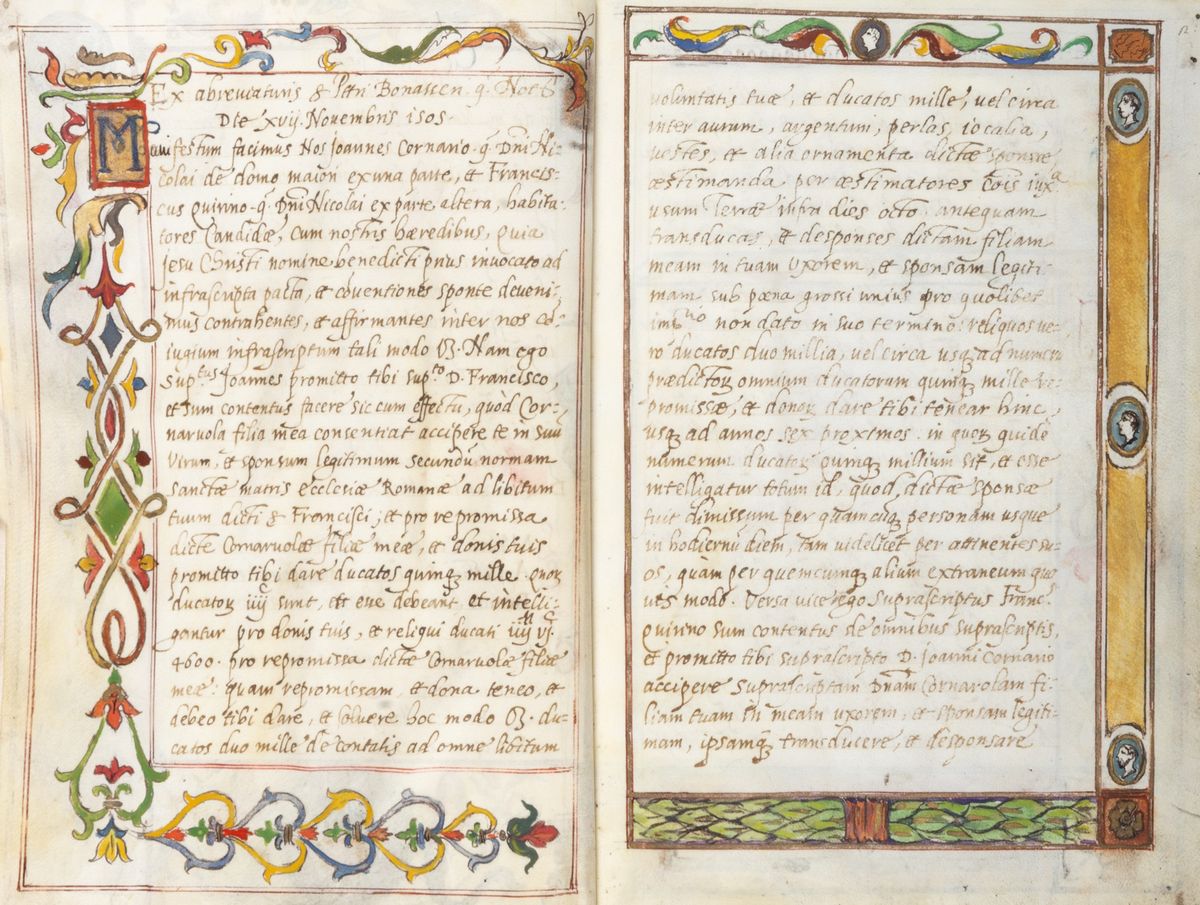 Ex abreviaturis S Petri Bonassen q. Not
Die xvij. Novembris 1505.
Manifestum facimus Nos Joannes Cornario q. Dni Ni-
colai de domo maiori ex una parte, et Francis-
cus Quirino q. Dni Nicolai ex parte altera, habita-
tores Candidæ, cum nostris hæredibus, Quia
Jesu Christi nomine benedicti prius invocato ad
infrascripta pacta, et coventiones sponte deveni-
mus contrahentes, et affirmantes inter nos co-
iugium infrascriptum tali modo Vz. Nam ego
Suptus Joannes promitto tibi supto D. Francisco,
et sum contentus facere sic cum effectu, quòd Cor-
narvola filia mea consentiat accipere te in suu
Virum, et sponsum legitimum secundu normam
Sanctæ matris ecclesiæ Romanæ ad libitum
tuum dicti S Francisci; et pro repromissa
dictæ Cornarvolæ filiæ meæ, et donis tuis
promitto tibi dare ducatos quinqz mille. quorz
ducatorz iiij sunt, et esse debeant, et intelli-
gantur pro donis tuis, et reliqui ducati iiij vj
4600. pro repromissa dictæ Cornarvolæ filiæ
meæ: quam repromissam, et dona teneo, et
debeo tibi dare, et solvere hoc modo Vz. du-
catos duo mille de contatis ad omne libitum
12
voluntatis tuæ, et ducatos mille, vel circa
inter aurum, argentum, perlas, iocalia,
vestes, et alia ornamenta dictæ sponsæ
æstimanda per æstimatores Cois iuxta
usum Terræ infra dies octo antequam
transducas, et desponses dictam filiam
meam in tuam Uxorem, et sponsam legiti-
mam, sub pæna grossi unius pro quolibet
non dato in suo termino: reliquos ve-
ro ducatos duo millia, vel circa usqz ad numeru
prædictorz omnium ducatorum quinqz mille re-
promissæ, et donorz dare tibi tenear hinc,
usqz ad annos sex proximos. in quorz quidē
numerum ducatorz quinqz millium sit, et esse
intelligatur totum id, quod dictæ sponsæ
fuit dimissum per quamcuqz personam usque
in hodiernu diem, tam videlicet per attinentes su-
os, quàm per quemcumqz alium extraneum quo-
vis modo. Versa vice ego Suprascriptus Francs
Quirino sum contentus de omnibus suprascriptis,
et promitto tibi suprascripto D. Joanni Cornario
accipere Suprascriptam Dnam Cornarolam fi-
liam tuam in meam uxorem, et sponsam legiti-
mam, ipsamqz transducere, et desponsare